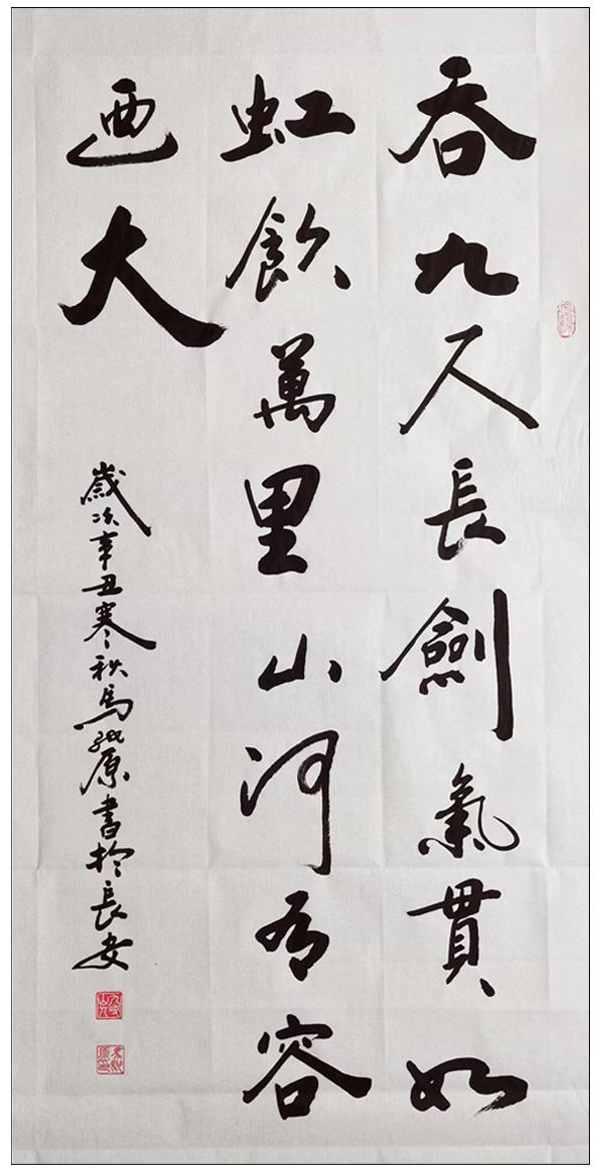 吞九尺長劍氣貫如
虹飲萬里山河有容
迺大
歲次辛丑寒秋馬原書於長安